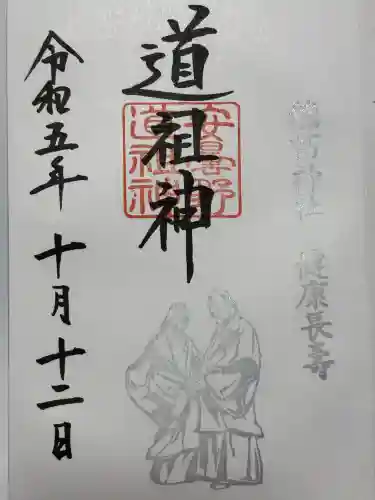 穂高神社 健康長寿
道祖神
安曇野
道祖神
令和五年十月十二日